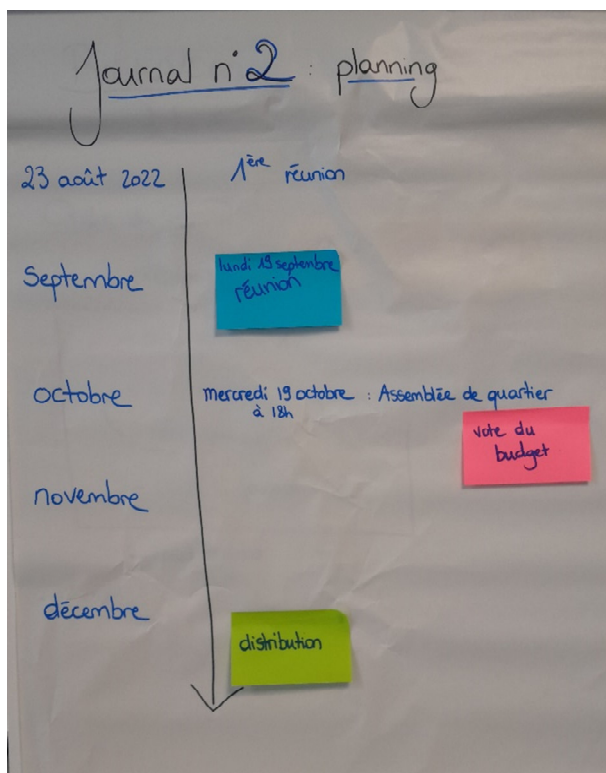 Journal n°2 : planning
23 août 2022
1ère réunion
Septembre
lundi 19 septembre
réunion
octobre
mercredi 19 octobre : Assemblée de quartier
à 18h
vote du
budget
novembre
décembre
distribution